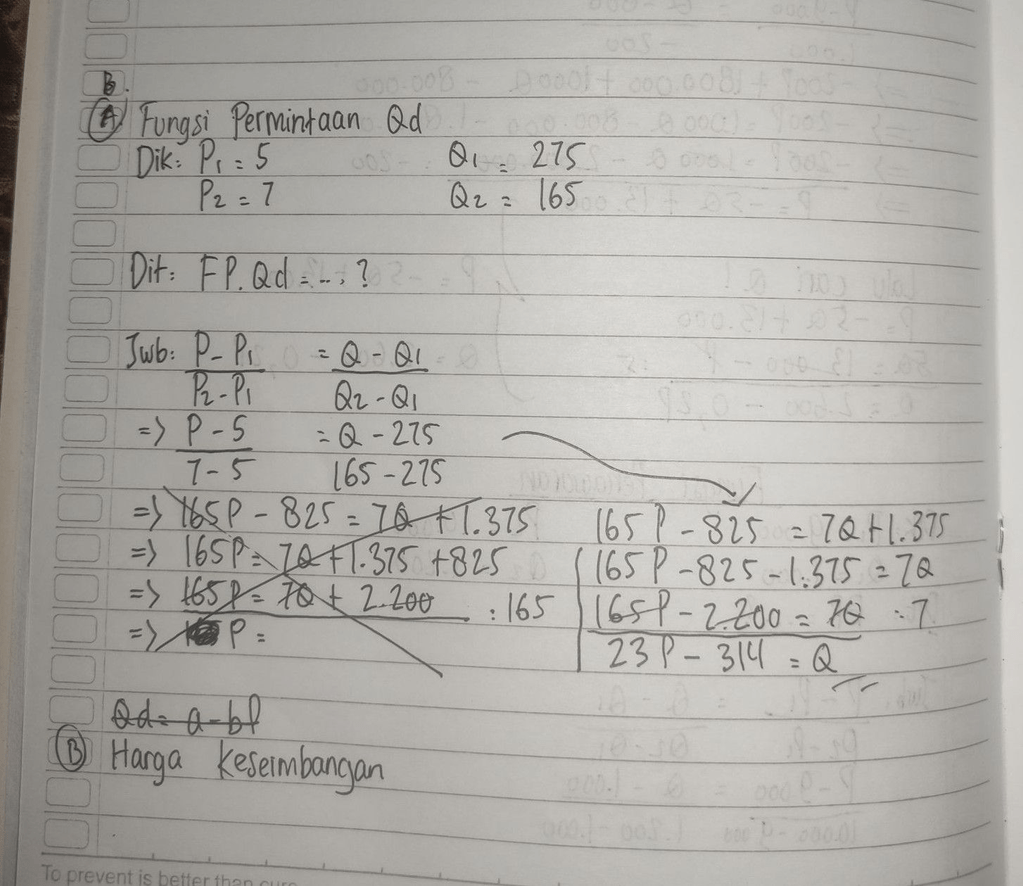 B.
(A) Fungsi Permintaan Qd
Dik: P1 = 5 Q1 = 275
P2 = 7 Q2 = 165
Dit: FP. Qd = ... ?
Jwb: P - P1 = Q - Q1
P2 - P1 Q2 - Q1
=> P - 5 = Q - 275
7 - 5 165 - 275
=> 165P - 825 = 7Q + 1.375
=> 165P = 7Q + 1.375 + 825
=> 165P = 7Q + 2.200 : 165
=> P =
165P - 825 = 7Q + 1.375
165P - 825 - 1.375 = 7Q
165P - 2.200 = 7Q : 7
23P - 314 = Q
Qd = a - bP
(B) Harga Keseimbangan
To prevent is better than cure